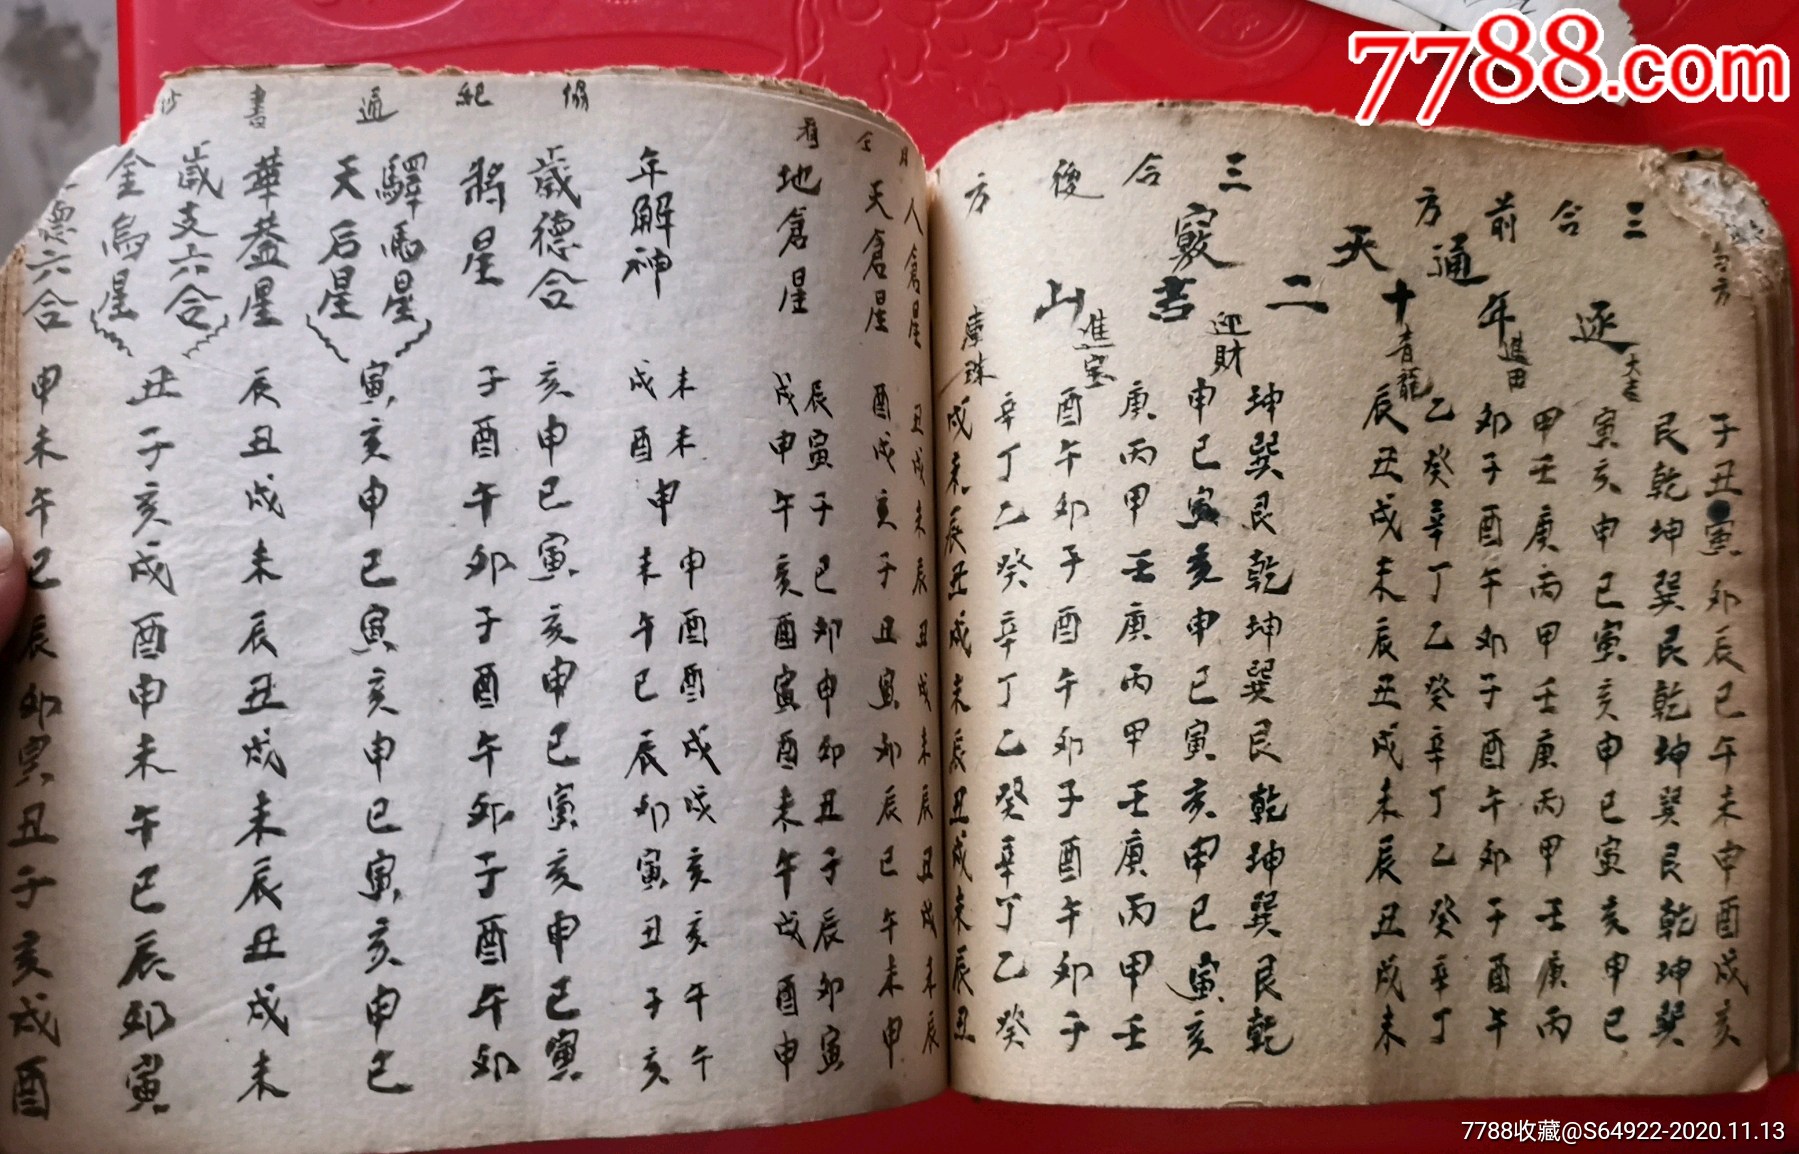 三合前方
三合後方
通天竅
逐年十二吉山
子丑寅卯辰巳午未申酉戌亥
艮乾坤巽艮乾坤巽艮乾坤巽
大吉
寅亥申巳寅亥申巳寅亥申巳
甲壬庚丙甲壬庚丙甲壬庚丙
進田
卯子酉午卯子酉午卯子酉午
乙癸辛丁乙癸辛丁乙癸辛丁
青龍
辰丑戌未辰丑戌未辰丑戌未
坤巽艮乾坤巽艮乾坤巽艮乾
迎財
申巳寅亥申巳寅亥申巳寅亥
庚丙甲壬庚丙甲壬庚丙甲壬
進寶
酉午卯子酉午卯子酉午卯子
辛丁乙癸辛丁乙癸辛丁乙癸
庫珠
戌未辰丑戌未辰丑戌未辰丑
協紀通書抄
人倉星 丑戌未辰丑戌未辰丑戌未辰
天倉星 酉戌亥子丑寅卯辰巳午未申
地倉星 辰寅子巳卯申卯丑子辰卯寅
戌申午亥酉寅酉未午戌酉申
年解神 未未申申酉酉戌戌亥亥午午
戌酉未午巳辰卯寅丑子亥
歲德合 亥申巳寅亥申巳寅亥申巳寅
將星 子酉午卯子酉午卯子酉午卯
驛馬星
天后星 寅亥申巳寅亥申巳寅亥申巳
華蓋星 辰丑戌未辰丑戌未辰丑戌未
歲支六合
金烏星 丑子亥戌酉申未午巳辰卯寅
德六合 申未午巳辰卯寅丑子亥戌酉
7788.com
7788收藏@S64922-2020.11.13